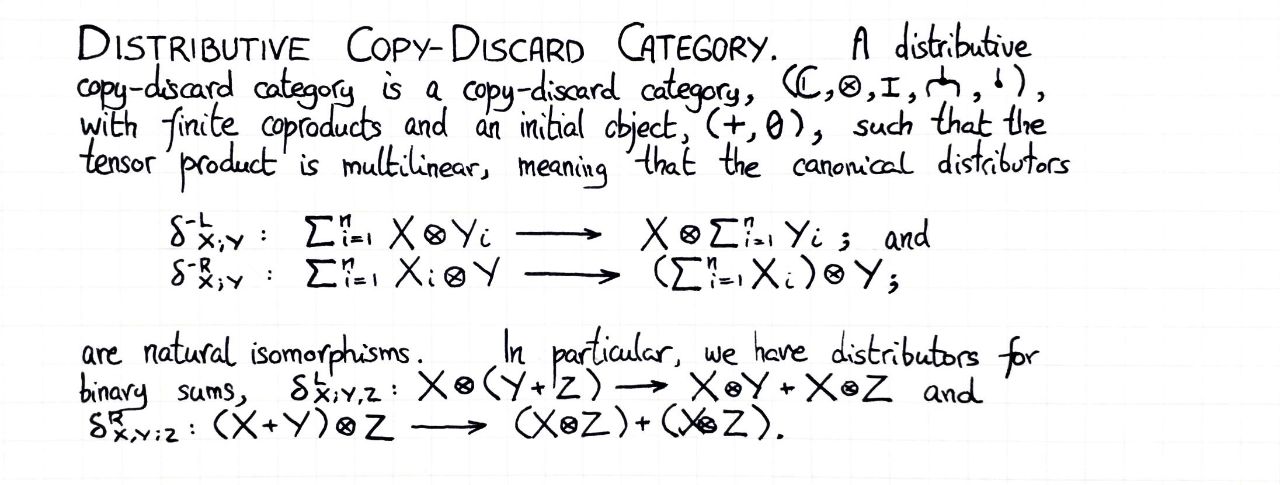 DISTRIBUTIVE COPY-DISCARD CATEGORY. A distributive
copy-discard category is a copy-discard category, (ℂ,⊗,I, , ),
with finite coproducts and an initial object, (+,0), such that the
tensor product is multilinear, meaning that the canonical distributors
δ⁻ᴸ_X;Y : ∑ⁿᵢ₌₁ X⊗Yᵢ ⟶ X⊗∑ⁿᵢ₌₁ Yᵢ ; and
δ⁻ᴿ_X;Y : ∑ⁿᵢ₌₁ Xᵢ⊗Y ⟶ (∑ⁿᵢ₌₁ Xᵢ)⊗Y;
are natural isomorphisms. In particular, we have distributors for
binary sums, δᴸ_X;Y,Z : X⊗(Y+Z) ⟶ X⊗Y + X⊗Z and
δᴿ_X,Y;Z : (X+Y)⊗Z ⟶ (X⊗Z)+(Y⊗Z).